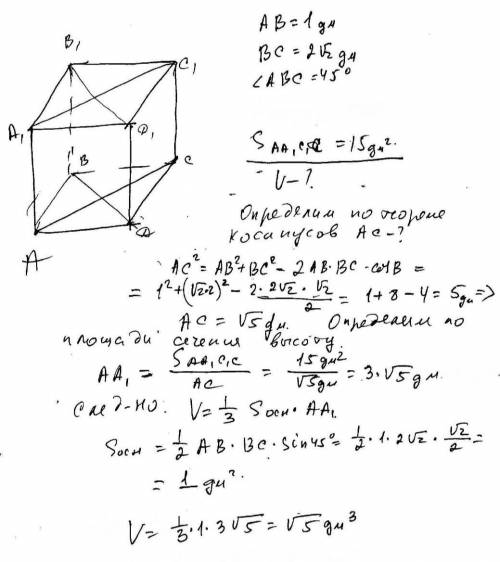 AB = 1 дм
BC = 2√2 дм
∠ABC = 45°
B₁
C₁
A₁
D₁
B
C
D
A
S AA₁C₁C = 15 дм²
V - ?
Определим по теореме
косинусов AC - ?
AC² = AB² + BC² - 2AB·BC·cosB =
= 1² + (√2·2)² - 2·2√2·√2/2 = 1 + 8 - 4 = 5 дм =>
AC = √5 дм. Определим по
площади сечения высоту.
AA₁ = S AA₁C₁C / AC = 15 дм² / √5 дм = 3·√5 дм.
След-но: V = 1/3 Sосн·AA₁
Sосн = 1/2 AB·BC·sin45° = 1/2·1·2√2·√2/2 =
= 1 дм².
V = 1/3·1·3√5 = √5 дм³